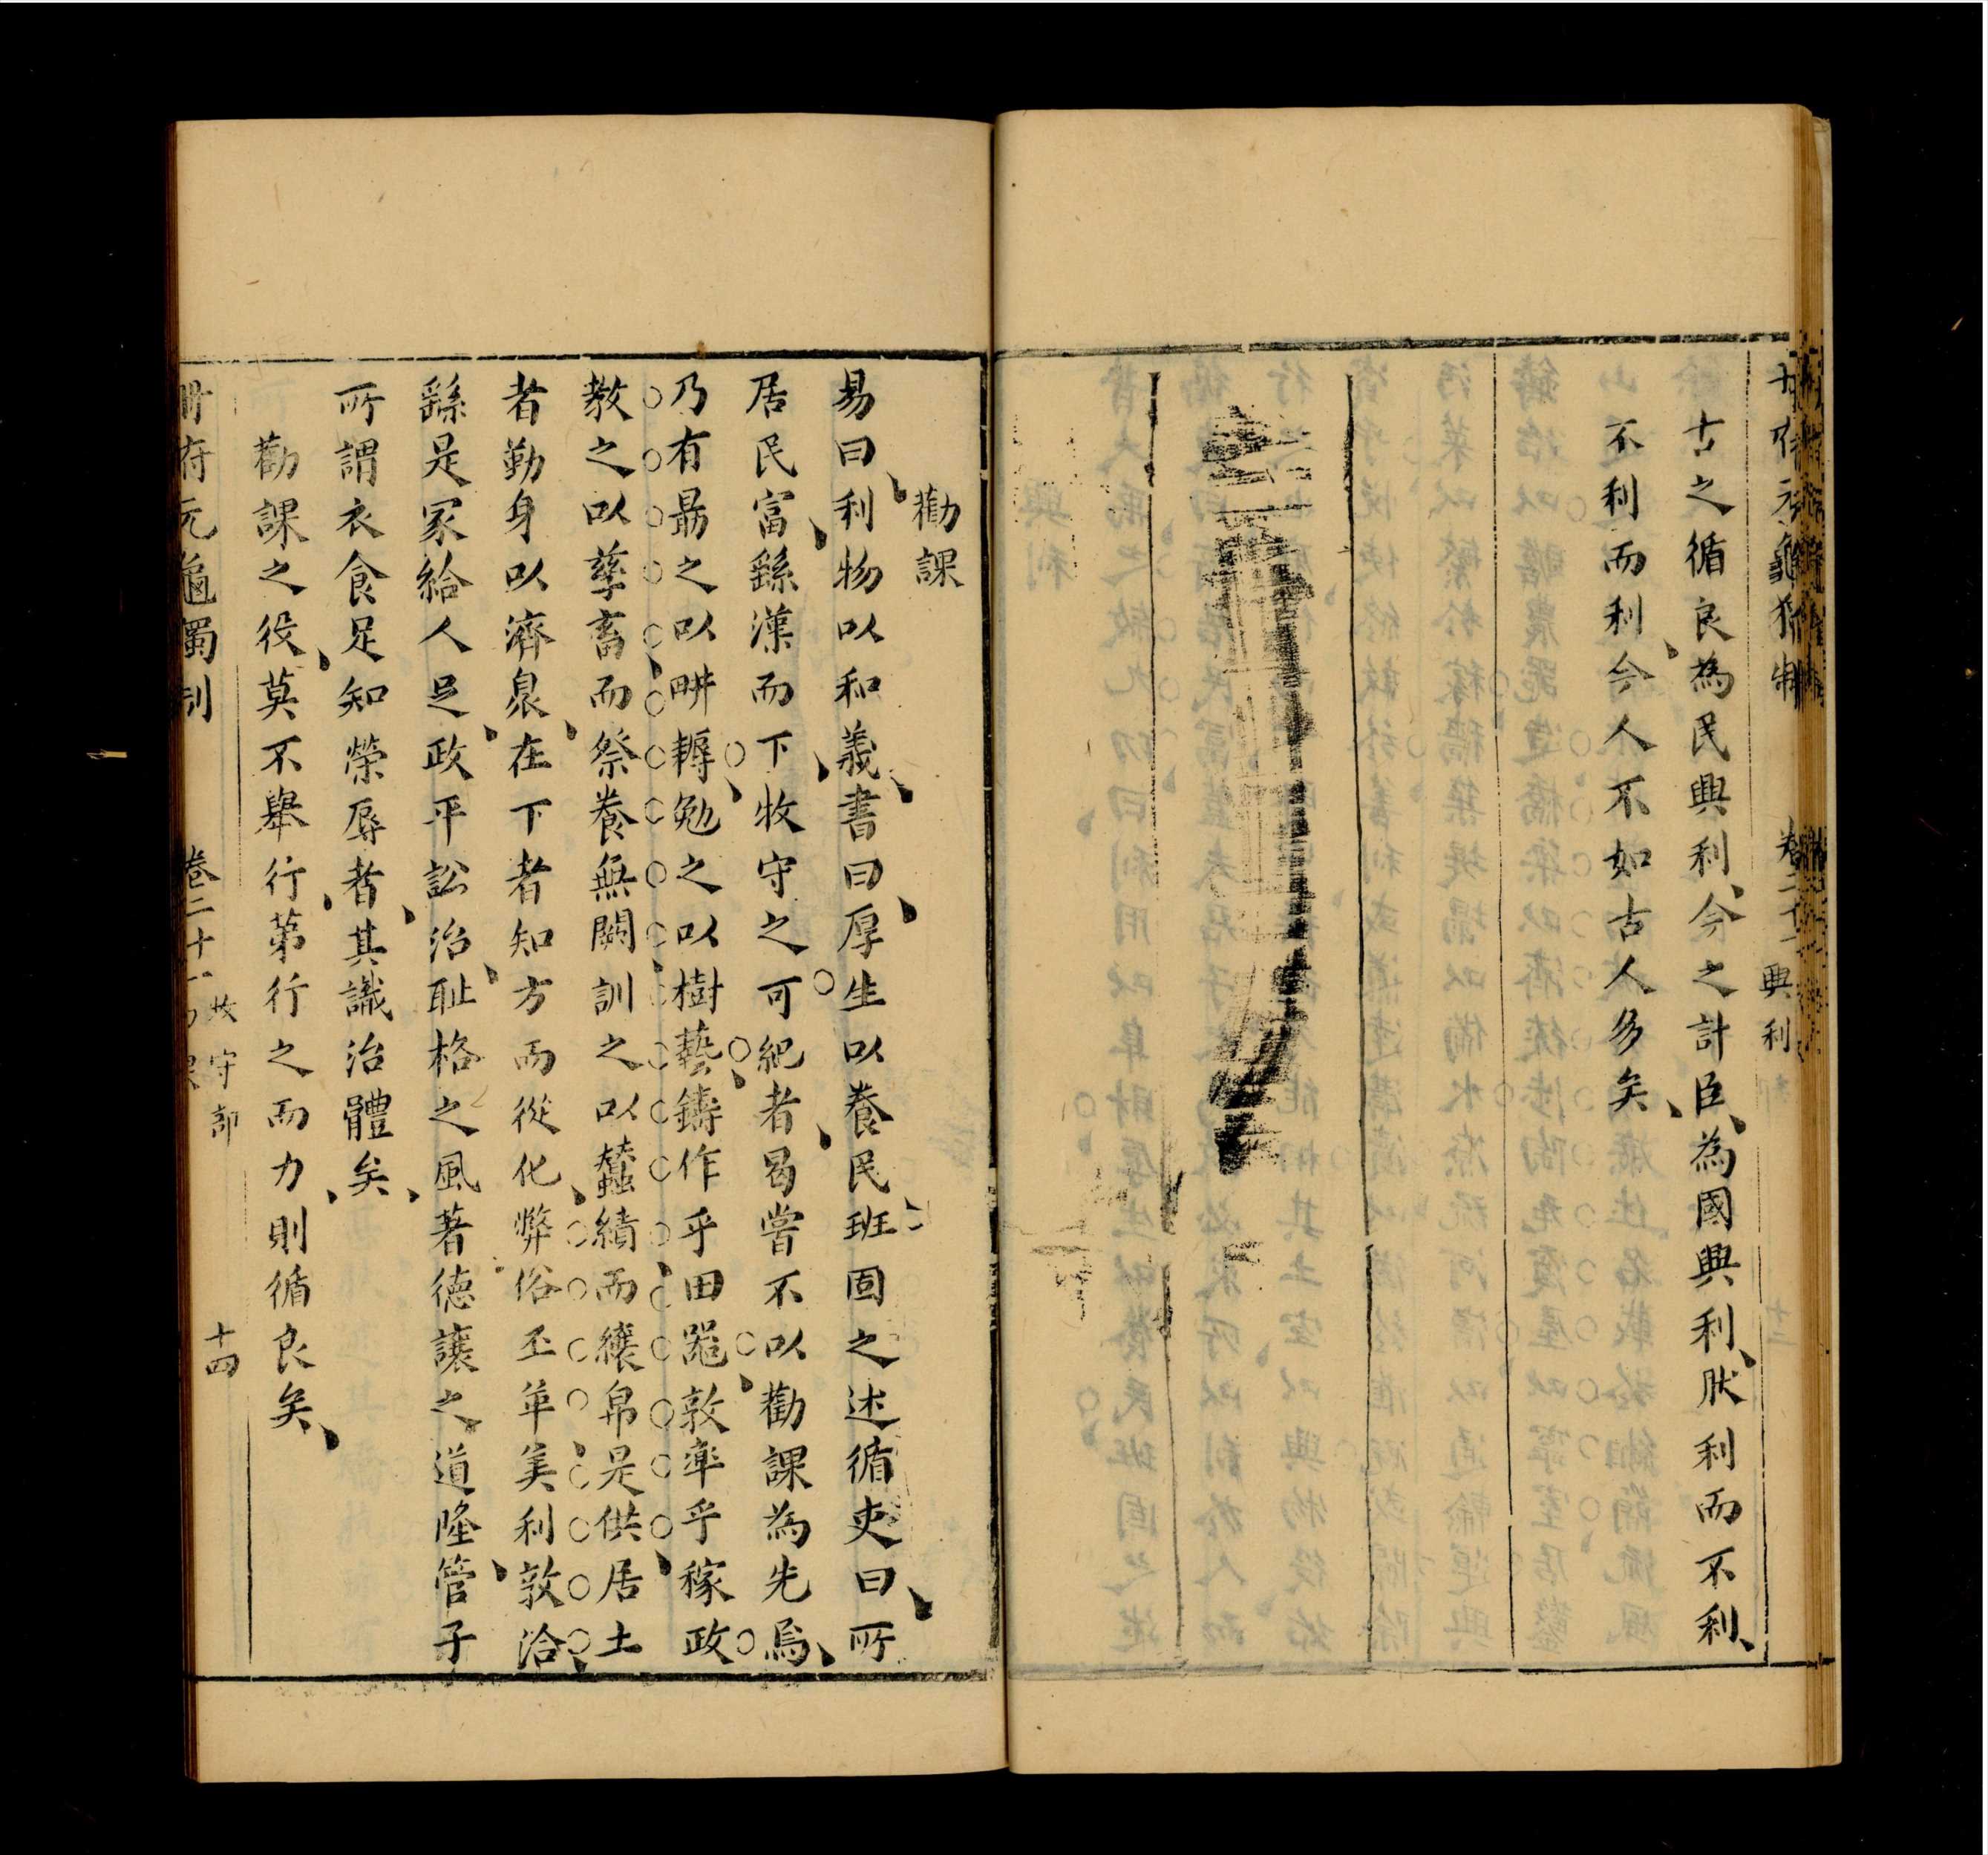 冊府元龜獨制 卷二十一 興利
古之循良為民興利今之計臣為國興利肰利而不利
不利而利今人不如古人多矣
勸課
易曰利物以和義書曰厚生以養民班固之述循吏曰所
居民富繇漢而下牧守之可紀者曷嘗不以勸課為先焉
乃有勗之以畊耨勉之以樹藝鑄作乎田噐敦率乎稼政
教之以孳畜而祭養無闕訓之以蠶績而纕帛是供居土
者勤身以濟衆在下者知方而從化弊俗丕革美利敦洽
繇是家給人足政平訟治耻格之風著德讓之道隆管子
所謂衣食足知榮辱者其識治體矣
勸課之役莫不舉行苐行之而力則循良矣
冊府元龜獨制 卷二十一 牧守部 十四